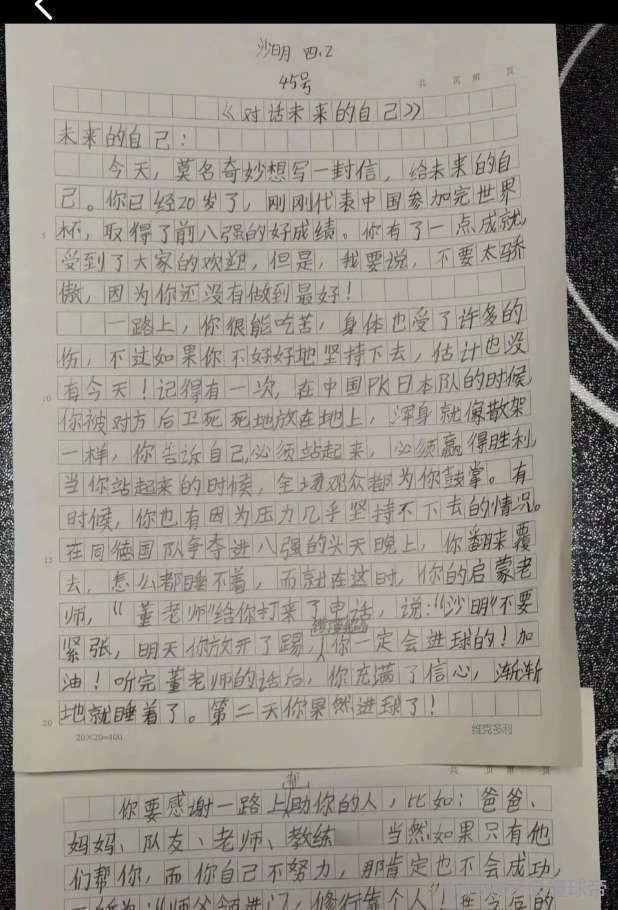 沙明 四.2
45号
共 页 第 页
《对话未来的自己》
未来的自己：
今天，莫名奇妙想写一封信，给未来的自
己。你已经20岁了，刚刚代表中国参加完世界
5 杯，取得了前八强的好成绩。你有了一点成就，
受到了大家的欢迎，但是，我要说，不要太骄
傲，因为你还没有做到最好！
一路上，你很能吃苦，身体也受了许多的
伤，不过如果你不好好地坚持下去，估计也没
10 有今天！记得有一次，在中国PK日本队的时候，
你被对方后卫死死地放在地上，浑身就像散架
一样，你告诉自己，必须站起来，必须赢得胜利，
当你站起来的时候，全场观众都为你鼓掌。有
时候，你也有因为压力几乎坚持不下去的情况。
15 在同德国队争夺进八强的头天晚上，你翻来覆
去，怎么都睡不着，而就在这时，你的启蒙老
师，“董老师”给你打来了电话，说：“沙明”不要
紧张，明天你放开了踢，你一定会进球的！加
油！听完董老师的话后，你充满了信心，渐渐
20 地就睡着了。第二天你果然进球了！
20×20=400 维克多利
共 页 第 页
你要感谢一路上帮助你的人，比如：爸爸、
妈妈、队友、老师、教练 当然如果只有他
们帮你，而你自己不努力，那肯定也不会成功，
师父领进门，修行靠个人！在今后的